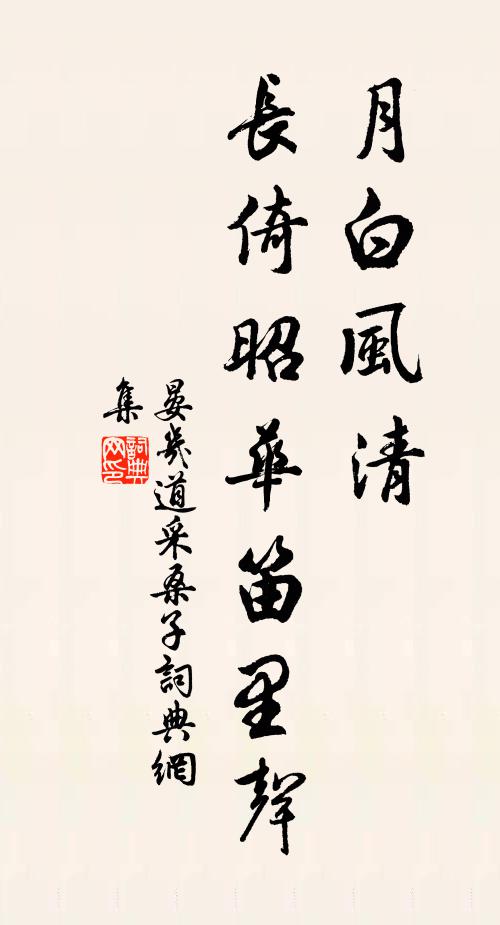 月白風清
長倚昭華笛里聲
晏幾道采桑子詞典網
集
詞典
网印